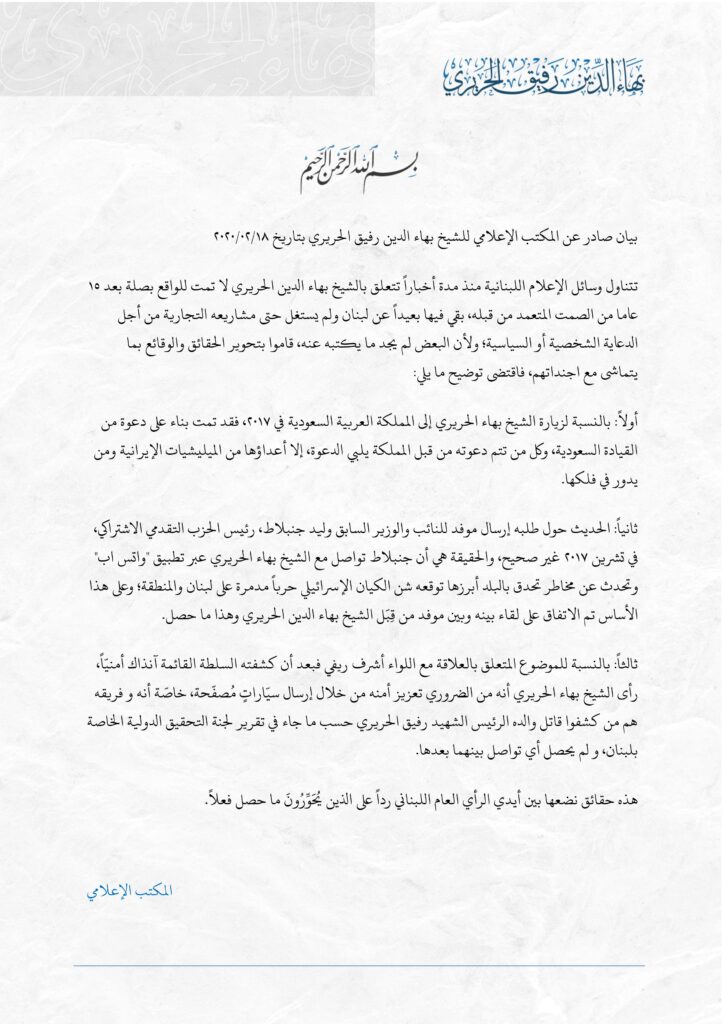 بهاء الدين رفيق الحريري
بسم الله الرحمن الرحيم
بيان صادر عن المكتب الإعلامي للشيخ بهاء الدين رفيق الحريري بتاريخ ٢٠٢٠/٠٢/١٨
تتناول وسائل الإعلام اللبنانية منذ مدة أخباراً تتعلق بالشيخ بهاء الدين الحريري لا تمت للواقع بصلة بعد ١٥
عاما من الصمت المتعمد من قبله، بقي فيها بعيداً عن لبنان ولم يستغل حتى مشاريعه التجارية من أجل
الدعاية الشخصية أو السياسية؛ ولأن البعض لم يجد ما يكتبه عنه، قاموا بتحوير الحقائق والوقائع بما
يتماشى مع اجنداتهم، فاقتضى توضيح ما يلي:
أولاً: بالنسبة لزيارة الشيخ بهاء الحريري إلى المملكة العربية السعودية في ٢٠١٧، فقد تمت بناء على دعوة من
القيادة السعودية، وكل من تتم دعوته من قبل المملكة يلبي الدعوة، إلا أعداؤها من الميليشيات الإيرانية ومن
يدور في فلكها.
ثانياً: الحديث حول طلبه إرسال موفد للنائب والوزير السابق وليد جنبلاط، رئيس الحزب التقدمي الاشتراكي،
في تشرين ٢٠١٧ غير صحيح، والحقيقة هي أن جنبلاط تواصل مع الشيخ بهاء الحريري عبر تطبيق "واتس اب"
وتحدث عن مخاطر تحدق بالبلد أبرزها توقعه شن الكيان الإسرائيلي حرباً مدمرة على لبنان والمنطقة؛ وعلى هذا
الأساس تم الاتفاق على لقاء بينه وبين موفد من قِبَل الشيخ بهاء الدين الحريري وهذا ما حصل.
ثالثاً: بالنسبة للموضوع المتعلق بالعلاقة مع اللواء أشرف ريفي فبعد أن كشفته السلطة القائمة آنذاك أمنيّاً،
رأى الشيخ بهاء الحريري أنه من الضروري تعزيز أمنه من خلال إرسال سيّاراتٍ مُصفّحة، خاصّة أنه و فريقه
هم من كشفوا قاتل والده الرئيس الشهيد رفيق الحريري حسب ما جاء في تقرير لجنة التحقيق الدولية الخاصة
بلبنان، و لم يحصل أي تواصل بينهما بعدها.
هذه حقائق نضعها بين أيدي الرأي العام اللبناني رداً على الذين يُحَوِّرُونَ ما حصل فعلاً.
المكتب الإعلامي